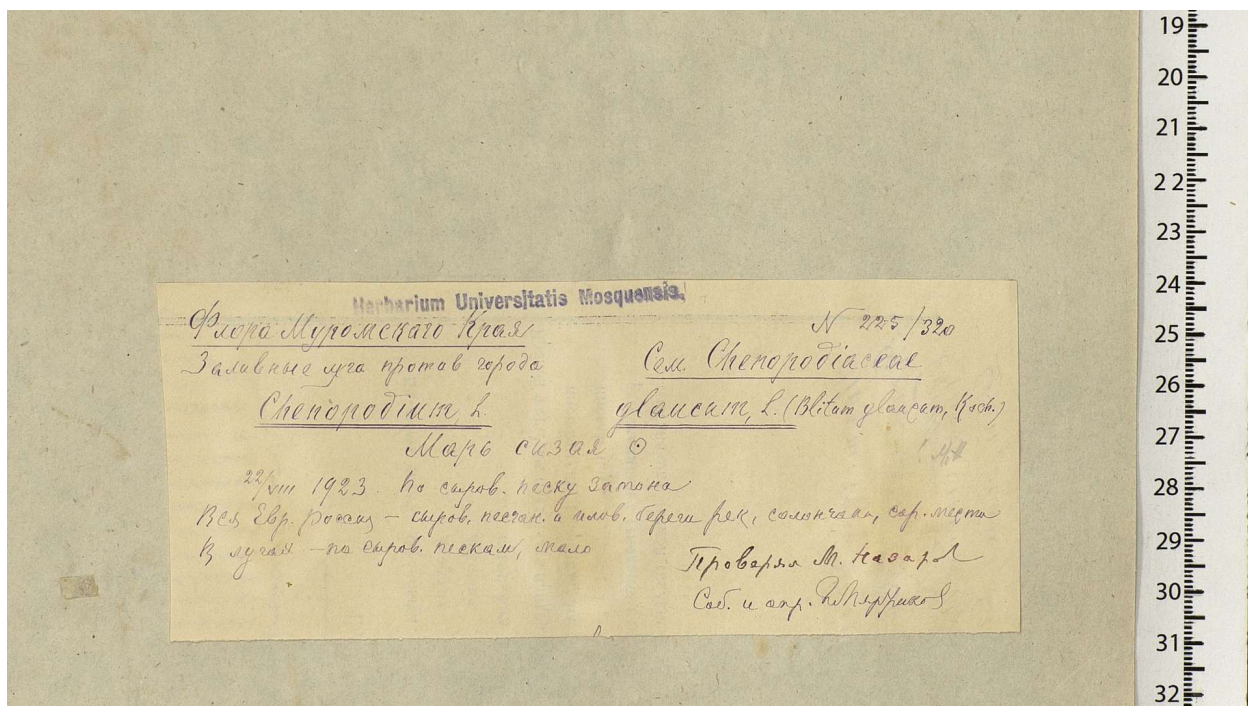 Herbarium Universitatis Mosquensis.
Флора Муромскаго Края
N 225/320
Заливные луга против города
Сем. Chenopodiaceae
Chenopodium, L. glaucum, L. (Blitum glaucum, Koch.)
Марь сизая ☉
22/VIII 1923. По сыров. песку затона
Вся Евр. Россия – сыров. песчан. и илов. берега рек, солончаки, сор. места
В лугах – по сыров. пескам, мало
Проверял М. Назаров
Соб. и опр.
19
20
21
22
23
24
25
26
27
28
29
30
31
32